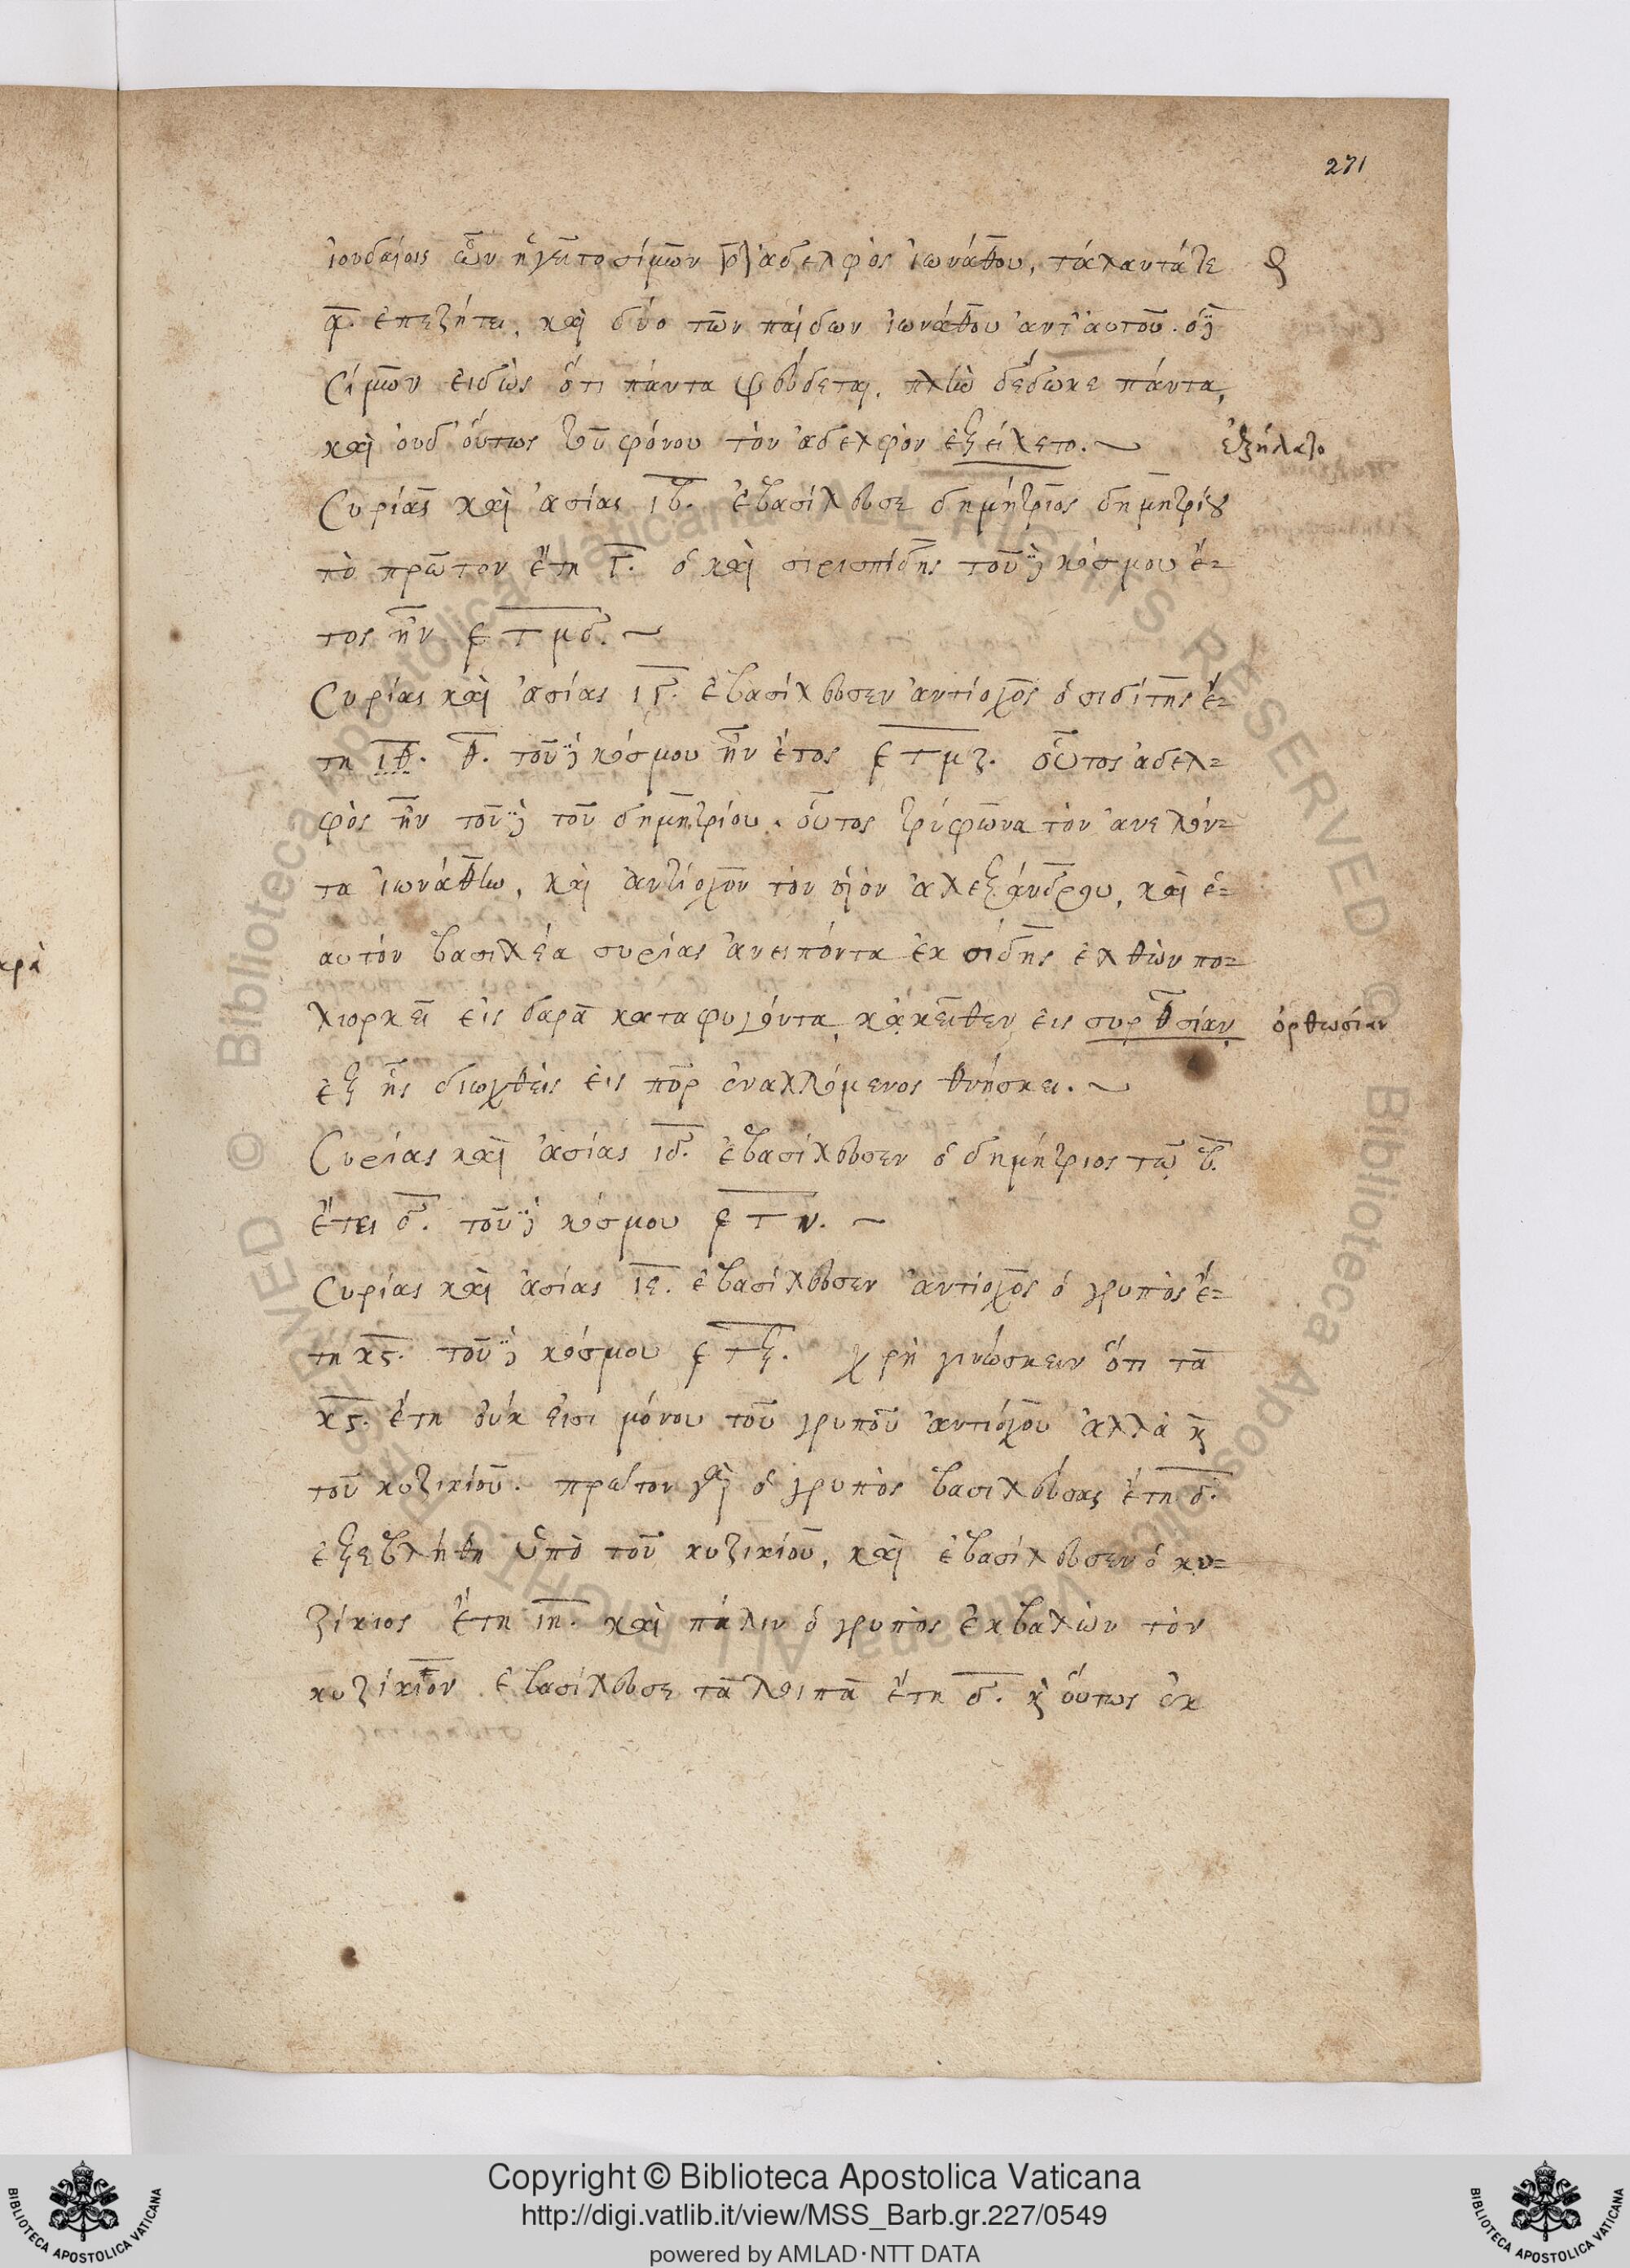 271
ἰουδαίοις ὧν ἡγεῖτο σίμων ὁ ἀδελφὸς ἰωνάθου, τάλαντά τε
ρ̄. ἐπεζήτει, καὶ δύο τῶν παίδων ἰωνάθου ἀντ' αυτοῦ. ὁ δὲ
Σίμων ειδὼς ὅτι πάντα ψεύδεται, πλὴν δέδωκε πάντα,
καὶ ουδ' ούτως τοῦ φόνου τὸν αδελφὸν ἐξείλετο. ~
ἐξήλατο
Συρίας καὶ ἀσίας ιβ. ἐβασίλευσε δημήτριος δημητρίου
τὸ πρῶτον ἔτη γ. ὁ καὶ σιριπίδης τοῦ δὲ κόσμου ἔ-
τος ἦν ͵ετμδ. ~
Συρίας καὶ ἀσίας ιγ. ἐβασίλευσεν ἀντίοχος ὁ σιδίτης ἔ-
τη ιθ. θ. τοῦ δὲ κόσμου ἦν ἔτος ͵ετμζ. οὗτος ἀδελ-
φὸς ἦν τοῦ δὲ τοῦ δημητρίου. οὗτος τρύφωνα τὸν ἀνελόν-
τα ἰωνάθην, καὶ ἀντίοχον τὸν υἱὸν ἀλεξάνδρου, καὶ ἑ-
αυτὸν βασιλέα συρίας ἀνειπόντα ἐκ σίδης ἐλθὼν πο-
λιορκεῖ εἰς δαρᾶ καταφυγόντα, κἀκεῖθεν εἰς συρθσίαν,
ὀρθωσίαν
ἐξ ἧς διωχθεὶς εἰς πῦρ ἐναλλόμενος θνήσκει. ~
Συρίας καὶ ἀσίας ιδ. ἐβασίλευσεν ὁ δημήτριος τῷ β.
ἔτει δ. τοῦ δὲ κόσμου ͵ετν. ~
Συρίας καὶ ἀσίας ιε. ἐβασίλευσεν ἀντίοχος ὁ γρυπὸς ἔ-
τη κς. τοῦ δὲ κόσμου ͵ετξ. χρὴ γινώσκειν ὅτι τὰ
κς. ἔτη οὐκ εἰσι μόνου τοῦ γρυποῦ ἀντιόχου ἀλλὰ καὶ
τοῦ κυζικίου. πρῶτον γὰρ ὁ γρυπὸς βασιλεύσας ἔτη δ.
ἐξεβλήθη ὑπὸ τοῦ κυζικίου, καὶ ἐβασίλευσεν ὁ κυ-
ζίκιος ἔτη ιη. καὶ πάλιν ὁ γρυπὸς ἐκβαλὼν τὸν
κυζίκιον ἐβασίλευσε τὰ λοιπὰ ἔτη δ. καὶ οὕτως ἐκ
κρὰ
© Biblioteca Apostolica Vaticana ALL RIGHTS RESERVED
Copyright © Biblioteca Apostolica Vaticana
http://digi.vatlib.it/view/MSS_Barb.gr.227/0549
powered by AMLAD·NTT DATA
BIBLIOTECA APOSTOLICA VATICANA
BIBLIOTECA APOSTOLICA VATICANA